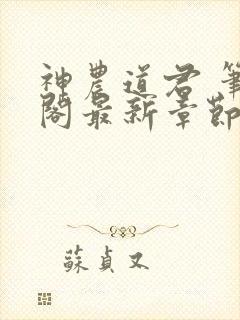 神農道君 筆
閣最新章節
蘇貞又